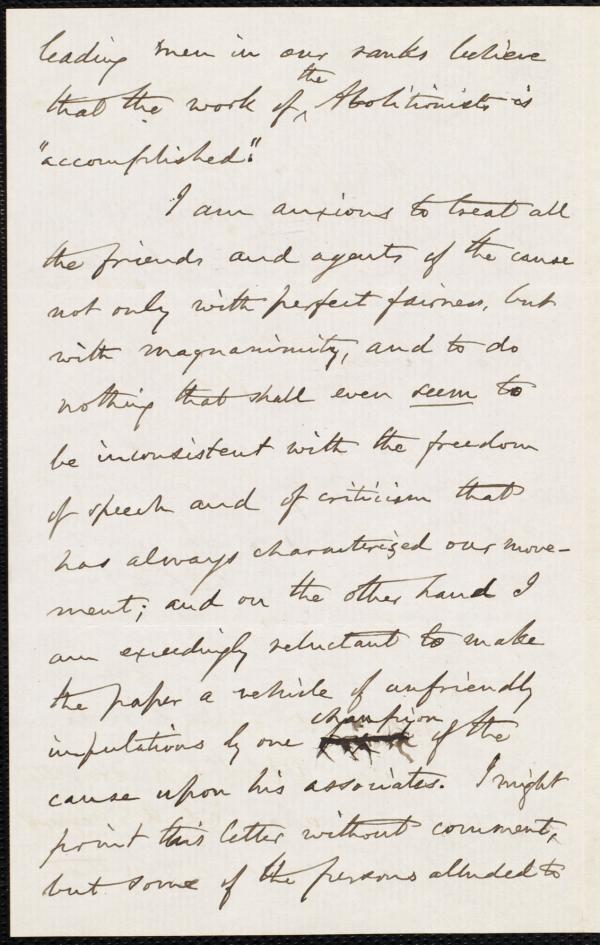 leading men in our ranks believe
that the work of the Abolitionists is
"accomplished."
I am anxious to treat all
the friends and agents of the cause
not only with perfect fairness, but
with magnanimity, and to do
nothing that shall even seem to
be inconsistent with the freedom
of speech and of criticism that
has always characterized our move-
ment; and on the other hand I
am exceedingly reluctant to make
the paper a vehicle of unfriendly
imputations by one champion of the
cause upon his associates. I might
print this letter without comment,
but some of the persons alluded to